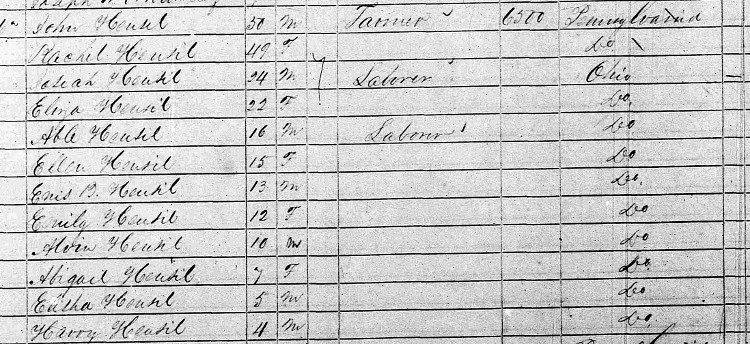 John Hensil 50 M Farmer 6500 Pennsylvania
Rachel Hensil 49 F Do
Josiah Hensil 24 M Laborer Ohio
Eliza Hensil 22 F Do
Able Hensil 16 M Laborer Do
Ellen Hensil 15 F Do
Enis B. Hensil 13 M Do
Emily Hensil 12 F Do
Alvin Hensil 10 M Do
Abigail Hensil 7 F Do
Hensil 5 M Do
Harry Hensil 4 M Do